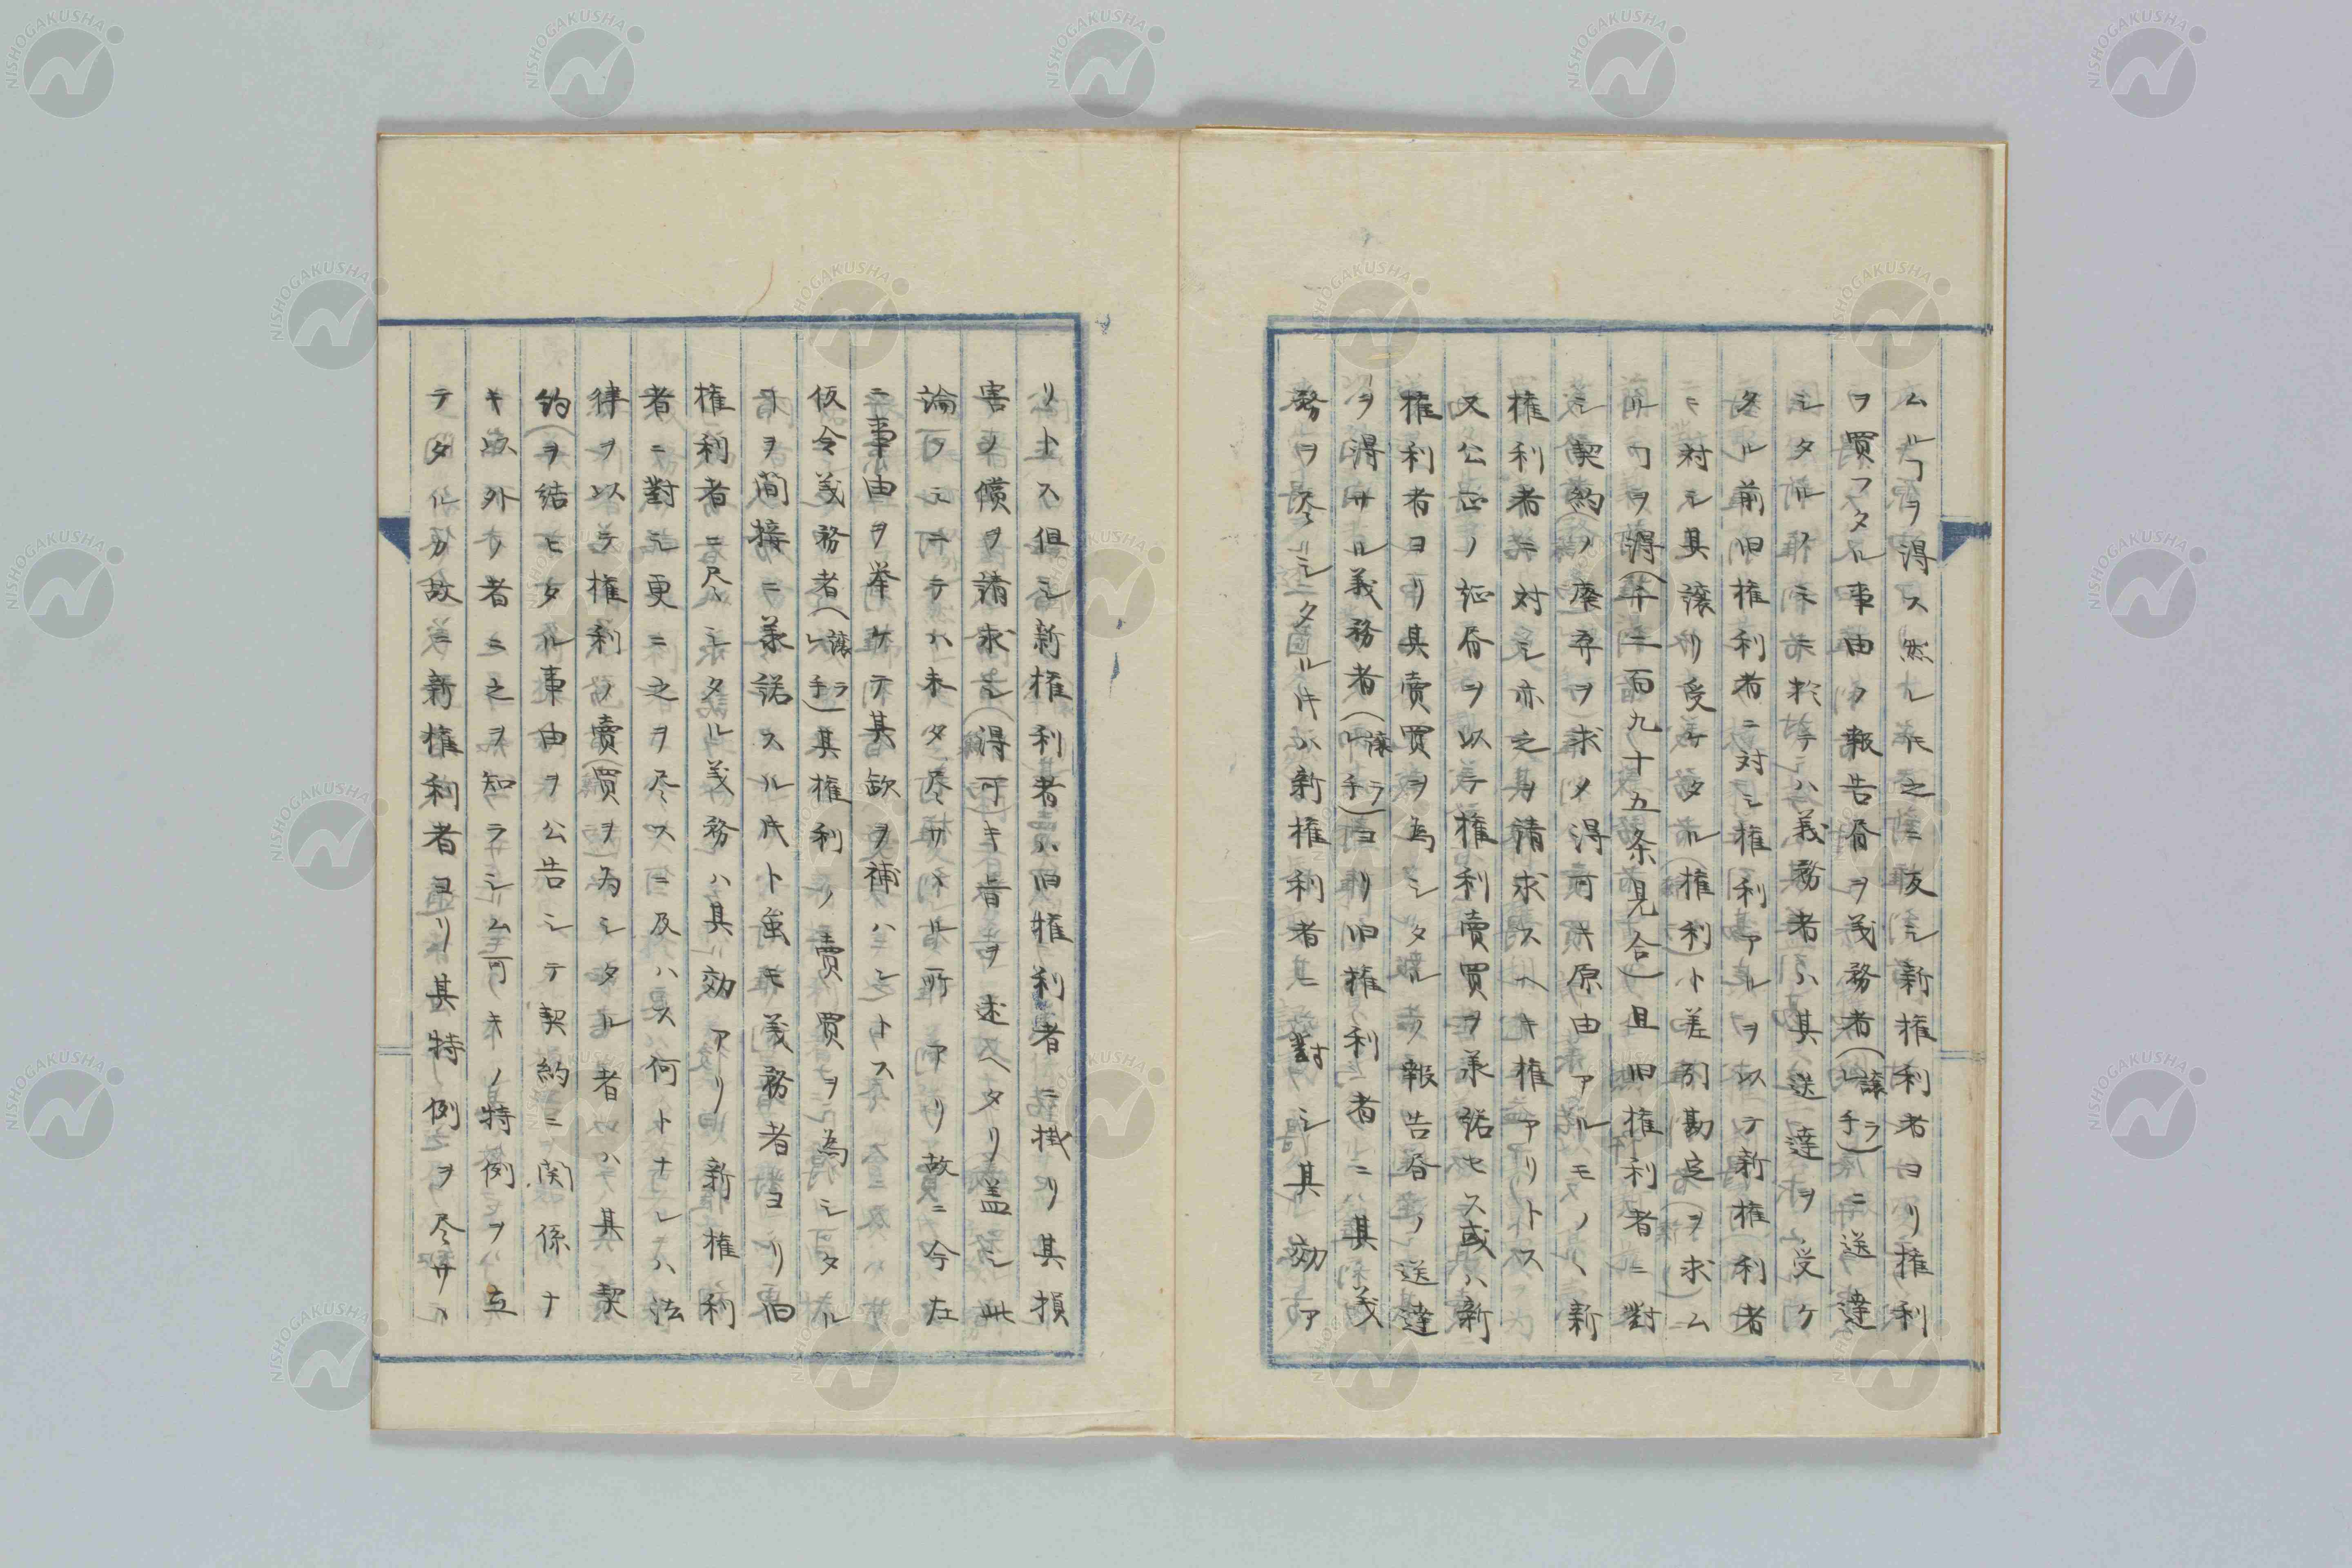 ムルヿヲ得ス然レ𪜈之ニ反シ新権利者ヨリ権利
ヲ買フタル事由ノ報告書ヲ義務者(譲ラレ手)ニ送達
シタル件ニ於テハ義務者ハ其送達ヲ受ケ
タル前旧権利者ニ対シ権利アルヲ以テ新権利者
ニ対シ其譲リ受ケタル(権利)ト差引勘定(ヲ求)ム
ルヿヲ得(千二百九十五条見合)且旧権利者ニ對
シ契約ノ廃弃ヲ求メ得可キ原由アルモノハ新
権利者ニ対シ亦之ヲ請求スヘキ権アリトス
又公正ノ証書ヲ以テ権利賣買ヲ承諾セス或ハ新
権利者ヨリ其賣買ヲ為シタルノ報告書ノ送達
ヲ得サル義務者(譲ラレ手)ヨリ旧権利者ニ其義
務ヲ尽シタル𪜈ハ新権利者ニ對シ其効ア
リトス但シ新権利者ハ旧権利者ニ掛リ其損
害ノ償ヲ請求シ(得可)キ旨ヲ述ヘタリ蓋シ此
論フニテハ未タ尽サヽル所アリ故ニ今左
ニ事由ヲ挙ケテ其缺ヲ補ハントス
仮令義務者(譲ラレ手)其権利ノ賣買ヲ為シタル
ヿヲ間接ニ承諾スル𪜈ト虽モ義務者ヨリ旧
権利者ニ尽シタル義務ハ其効アリ新権利
者ニ對シ更ニ之ヲ尽スニ及ハス何トナレハ法
律ヲ以テ権利ノ賣買ヲ為シタル者ハ其契
約ヲ結ヒタル事由ヲ公告シテ契約ニ関係ナ
キ以外ノ者ニ之ヲ知ラシム可キノ特例ヲ立
テタルカ故ニ新権利者ヨリ其特例ヲ尽サヽ